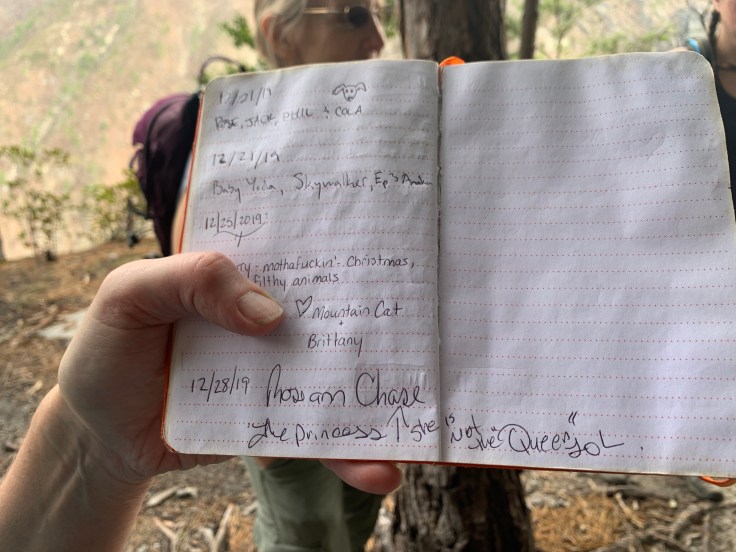 12/21/19
ROSE, JACK, PHIL & COLA
12/21/19
Baby Yoda, Skywalker,
12/25/2019:
mothafuckin' Christmas,
filthy animals
♡ Mountain Cat
+
Brittany
12/28/19 Chase
"the princess ↑ she is Not she "Queen" LOL.